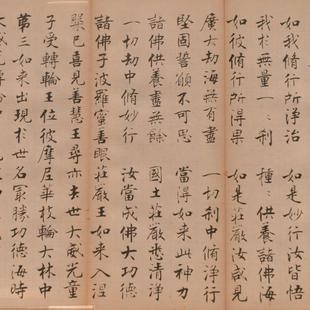 如我脩行所淨治　如是妙行汝皆悟
我於無量一一剎　種種供養諸佛海
如彼脩行所得果　如是莊嚴汝咸見
廣大劫海無有盡　一切剎中脩淨行
堅固誓願不可思　當得如來此神力
諸佛供養盡無餘　國土莊嚴悉清淨
一切劫中脩妙行　汝當成佛大功德
諸佛子波羅蜜善眼莊嚴王如來入涅
槃已喜見善慧王尋亦去世大威光童
子受轉輪王位彼摩尼華枝輪大林中
第三如來出現於世名最勝功德海時